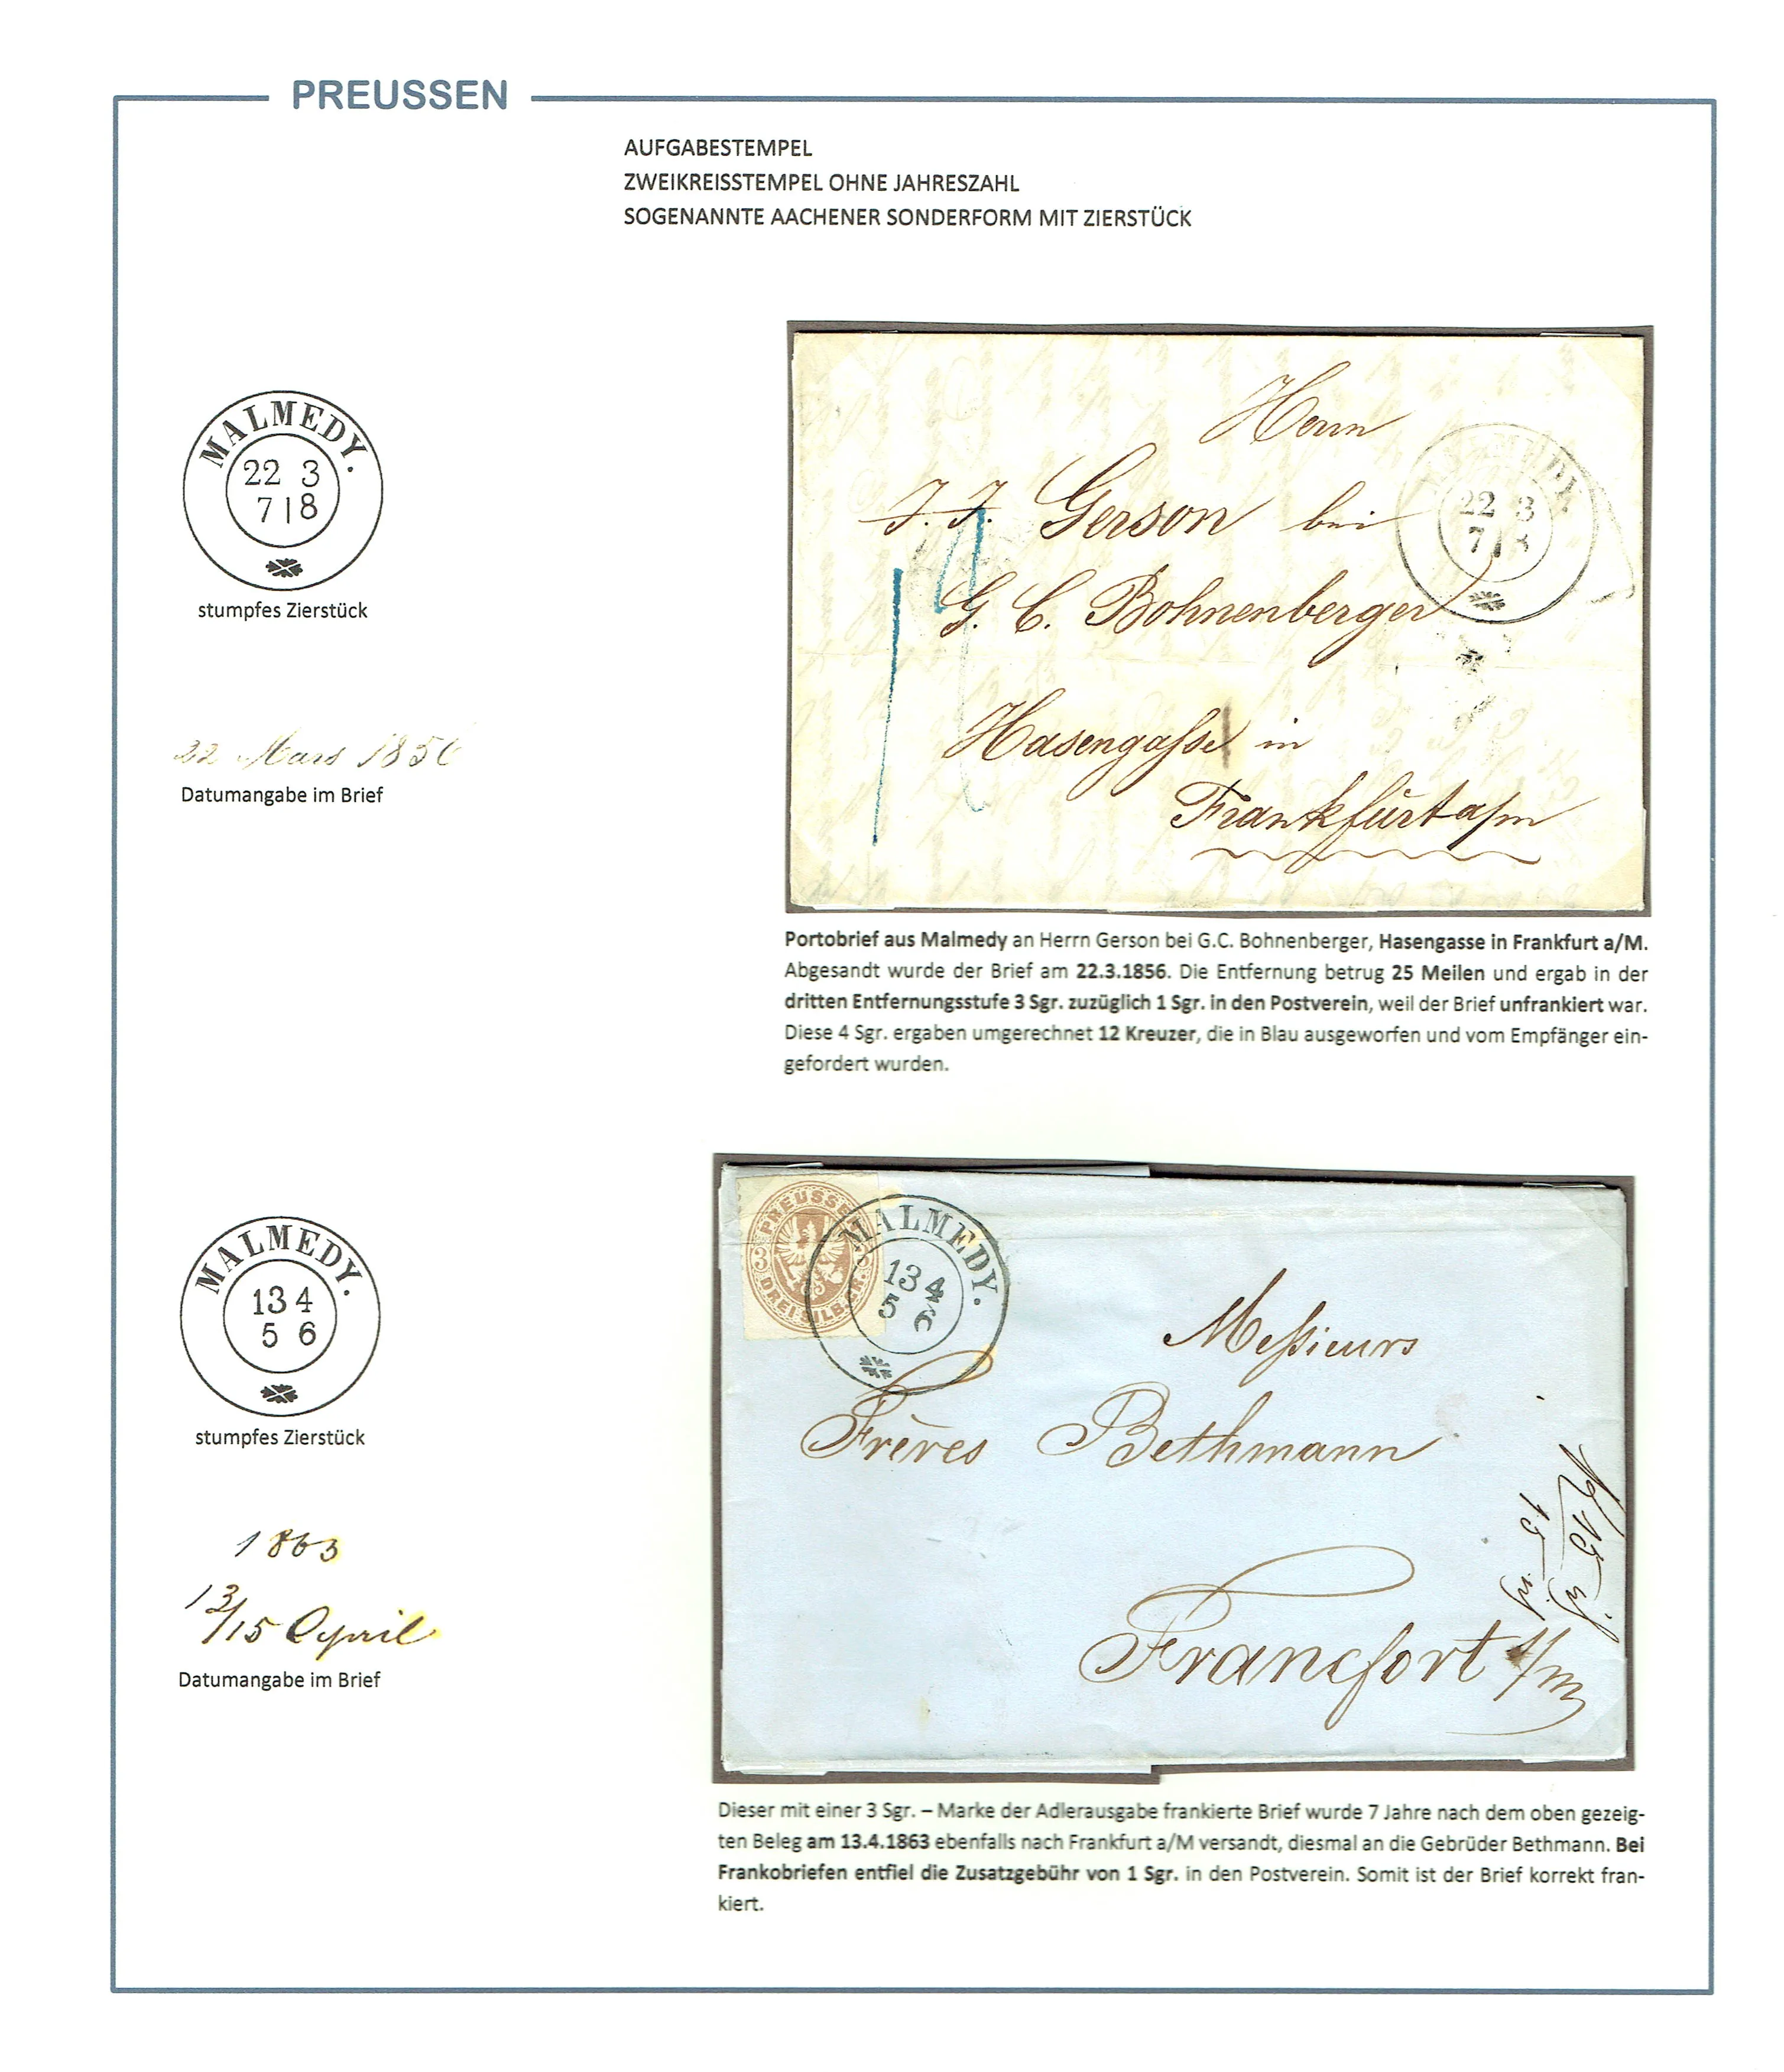 PREUSSEN
AUFGABESTEMPEL
ZWEIKREISSTEMPEL OHNE JAHRESZAHL
SOGENANNTE AACHENER SONDERFORM MIT ZIERSTÜCK
MALMEDY.
22 3
7|8
stumpfes Zierstück
22 Mars 1856
Datumangabe im Brief
Herrn
J. J. Gerson bei
G. C. Bohnenberger
Hasengasse in
Frankfurt a/m
MALMEDY
22 3
7|8
Portobrief aus Malmedy an Herrn Gerson bei G.C. Bohnenberger, Hasengasse in Frankfurt a/M.
Abgesandt wurde der Brief am 22.3.1856. Die Entfernung betrug 25 Meilen und ergab in der
dritten Entfernungsstufe 3 Sgr. zuzüglich 1 Sgr. in den Postverein, weil der Brief unfrankiert war.
Diese 4 Sgr. ergaben umgerechnet 12 Kreuzer, die in Blau ausgeworfen und vom Empfänger ein-
gefordert wurden.
MALMEDY.
13 4
5 6
stumpfes Zierstück
1863
13/15 April
Datumangabe im Brief
PREUSSEN
3
DREI SILB. GR.
MALMEDY.
13 4
5 6
Messieurs
Frères Bethmann
Francfort s/m
Dieser mit einer 3 Sgr. – Marke der Adlerausgabe frankierte Brief wurde 7 Jahre nach dem oben gezeig-
ten Beleg am 13.4.1863 ebenfalls nach Frankfurt a/M versandt, diesmal an die Gebrüder Bethmann. Bei
Frankobriefen entfiel die Zusatzgebühr von 1 Sgr. in den Postverein. Somit ist der Brief korrekt fran-
kiert.